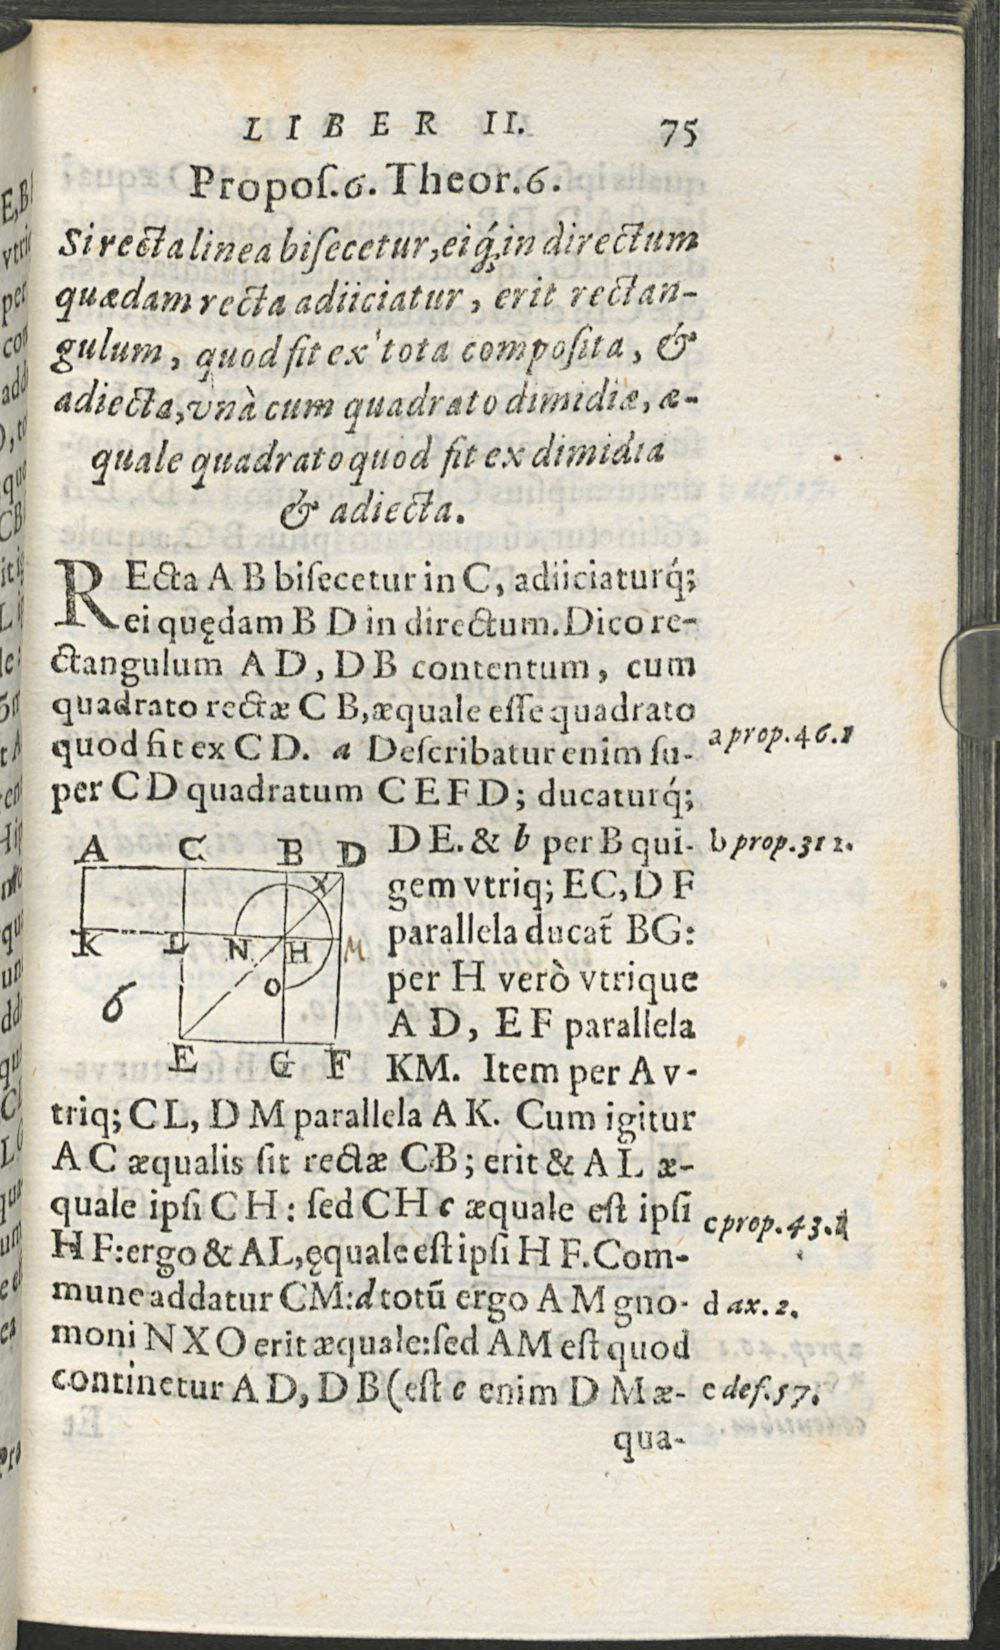 LIBER II. 75
Propoſ.6. Theor.6.
Si recta linea biſecetur, eiq́; in directum
quædam recta adiiciatur, erit rectan-
gulum, quod fit ex tota compoſita, &
adiecta, vnà cum quadrato dimidiæ, æ-
quale quadrato quod fit ex dimidia
& adiecta.
REcta A B biſecetur in C, adiiciaturq́;
ei quędam B D in directum. Dico re-
ctangulum A D, D B contentum, cum
quadrato rectæ C B, æquale eſſe quadrato
quod fit ex C D. a Deſcribatur enim ſu-
a prop.46.1
per C D quadratum C E F D; ducaturq́;
D E. & b per B qui-
b prop.31 1.
gem vtriq; EC, D F
parallela ducat̃ BG:
per H verò vtrique
A D, E F parallela
KM. Item per A v-
A C B D
X
K L N H M
O
6
E G F
triq; C L, D M parallela A K. Cum igitur
A C æqualis ſit rectæ C B; erit & A L æ-
quale ipſi C H: ſed C H c æquale eſt ipſi
c prop.43.1
H F: ergo & AL, ęquale eſt ipſi H F. Com-
mune addatur CM: d totũ ergo A M gno-
d ax.2.
moni N X O erit æquale: ſed AM eſt quod
continetur A D, D B (eſt e enim D M æ-
e def.57.
qua-